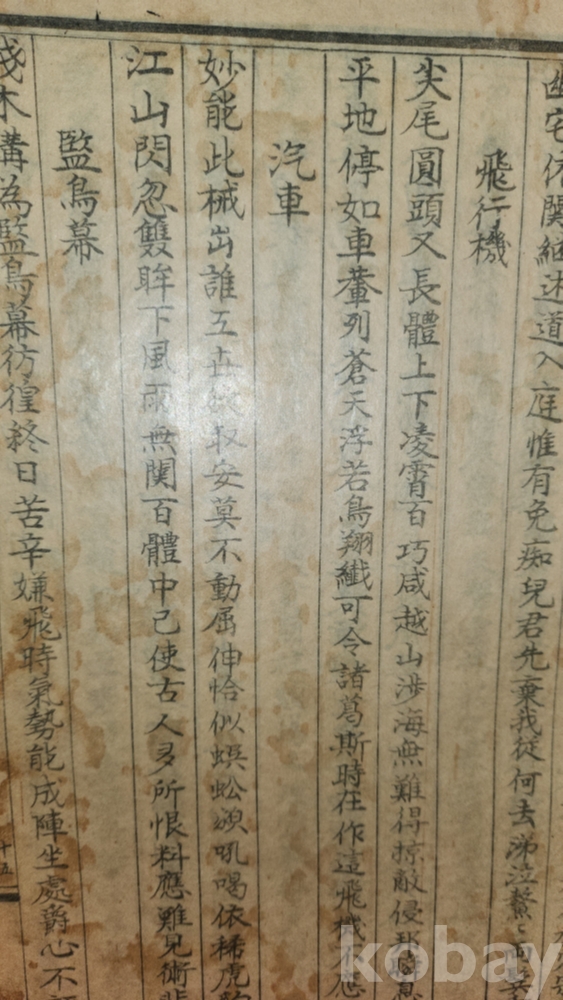 幽宅依関繼述道入庭惟有免痴兒君先棄我從何去涕泣
飛行機
尖尾圓頭又長體上下凌霄百巧咸越山涉海無難得掠敵侵
平地停如車輦列蒼天浮若鳥翔纖可令諸葛斯時在作這飛機不應
汽車
妙能此械出誰工 取安莫不動屈伸恰似蜈蚣 吼喝依稀虎
江山閃忽雙眸下風雨無関百體中已使古人多所恨料應難見術
監鳥幕
淺木構為監鳥幕彷徨終日苦辛嫌飛時氣勢能成陣坐處爵心不
十五
kobay